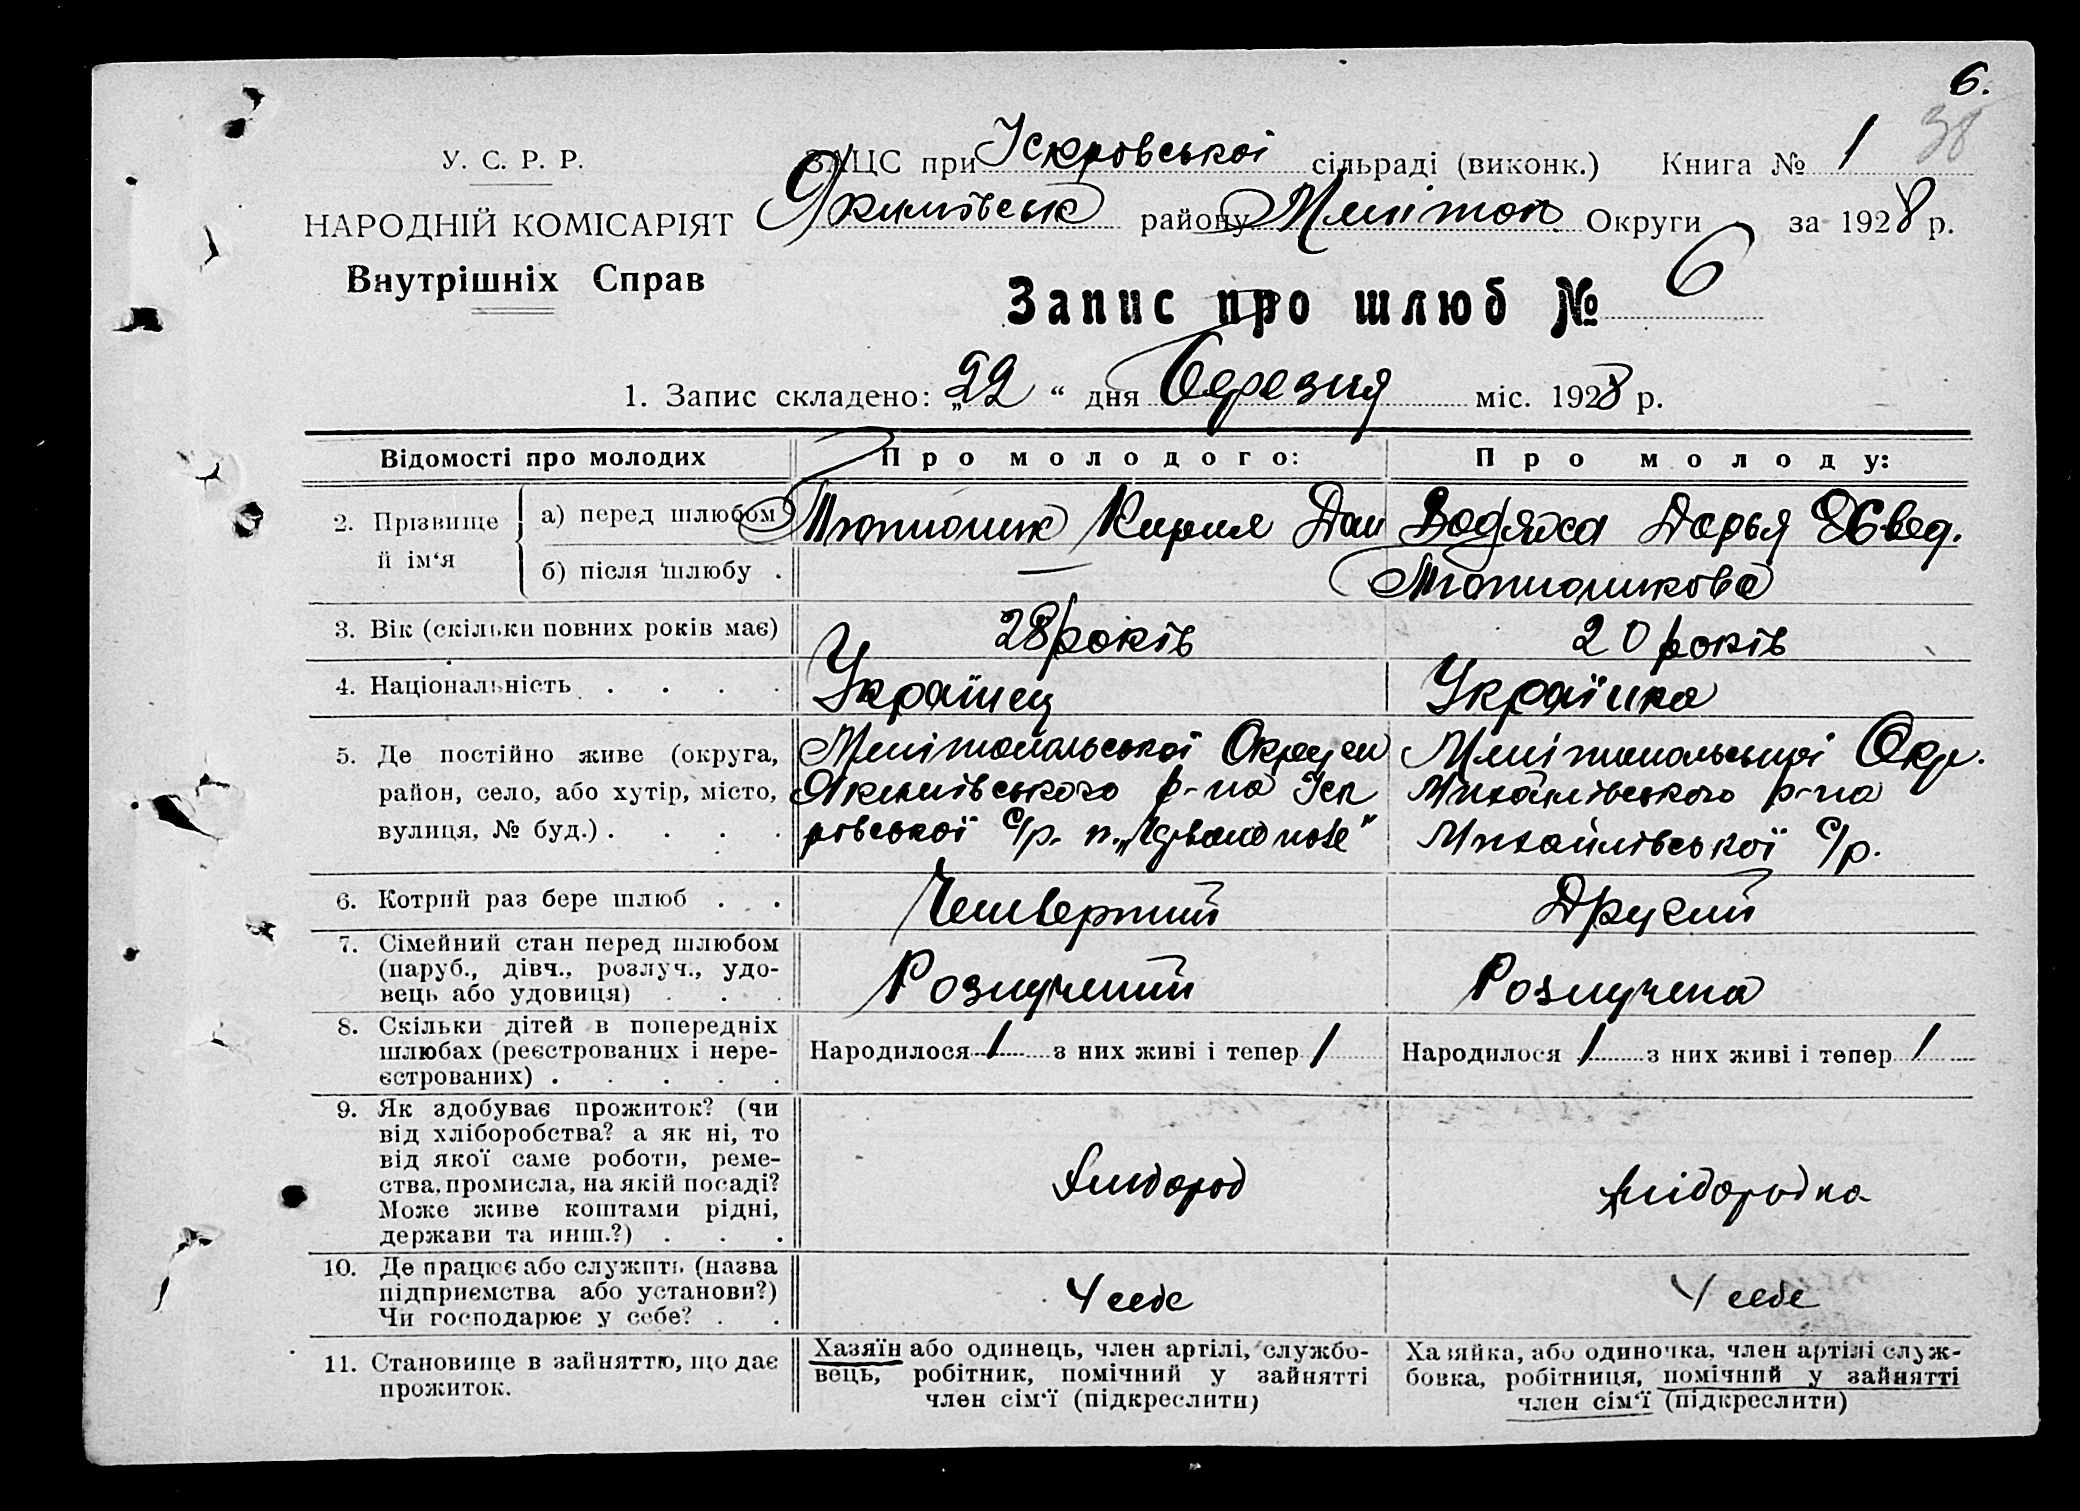 6.
38
У. С. Р. Р.
НАРОДНІЙ КОМІСАРІЯТ
Внутрішніх Справ
ЗАЦС при Іскровської сільраді (виконк.) Книга № 1
Якимівськ району Меліт оп. Округи за 1928 р.
Запис про шлюб № 6
1. Запис складено: „22“ дня Березня міс. 1928 р.
Відомості про молодих
Про молодого:
Про молоду:
2. Прізвище й ім‘я
а) перед шлюбом
Кирил Дан
Водяха Дарья
б) після шлюбу .
—
3. Вік (скільки повних років має)
28 років
20 років
4. Національність . . . .
Українец
Українка
5. Де постійно живе (округа,
район, село, або хутір, місто,
вулиця, № буд.) . . . .
Мелітопольської Округи
Якимівського р-на Іск
ровської с/р. п.
Мелітопольської Окр.
Михайлівського р-на
Михайлівської с/р.
6. Котрий раз бере шлюб . .
Четвертий
Другий
7. Сімейний стан перед шлюбом
(паруб., дівч., розлуч., удо-
вець або удовиця) . . .
Розлучений
Розлучена
8. Скільки дітей в попередніх
шлюбах (реєстрованих і нере-
єстрованих) . . . . .
Народилося 1 з них живі і тепер 1
Народилося 1 з них живі і тепер 1
9. Як здобуває прожиток? (чи
від хліборобства? а як ні, то
від якої саме роботи, реме-
ства, промисла, на якій посаді?
Може живе коштами рідні,
держави та инш.?) . . .
Хлібороб
Хліборобка
10. Де працює або служить (назва
підприємства або установи?)
Чи господарює у себе? . .
У себе
У себе
11. Становище в зайняттю, що дає
прожиток.
Хазяїн або одинець, член артілі, службо-
вець, робітник, помічний у зайнятті
член сім‘ї (підкреслити)
Хазяйка, або одиночка, член артілі служ-
бовка, робітниця, помічний у зайнятті
член сім‘ї (підкреслити)